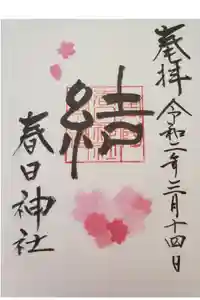 奉拝 令和二年三月十四日
結
春日神社